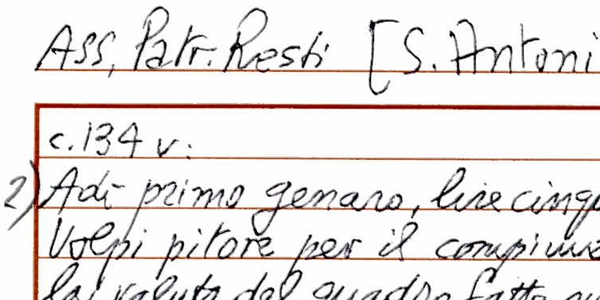 Ass. Patr. Resti [S. Antoni
c. 134 v:
2) Adi primo genaro, lire cinqu
Volpi pitore per il compime
lai valuta del quadro fatto